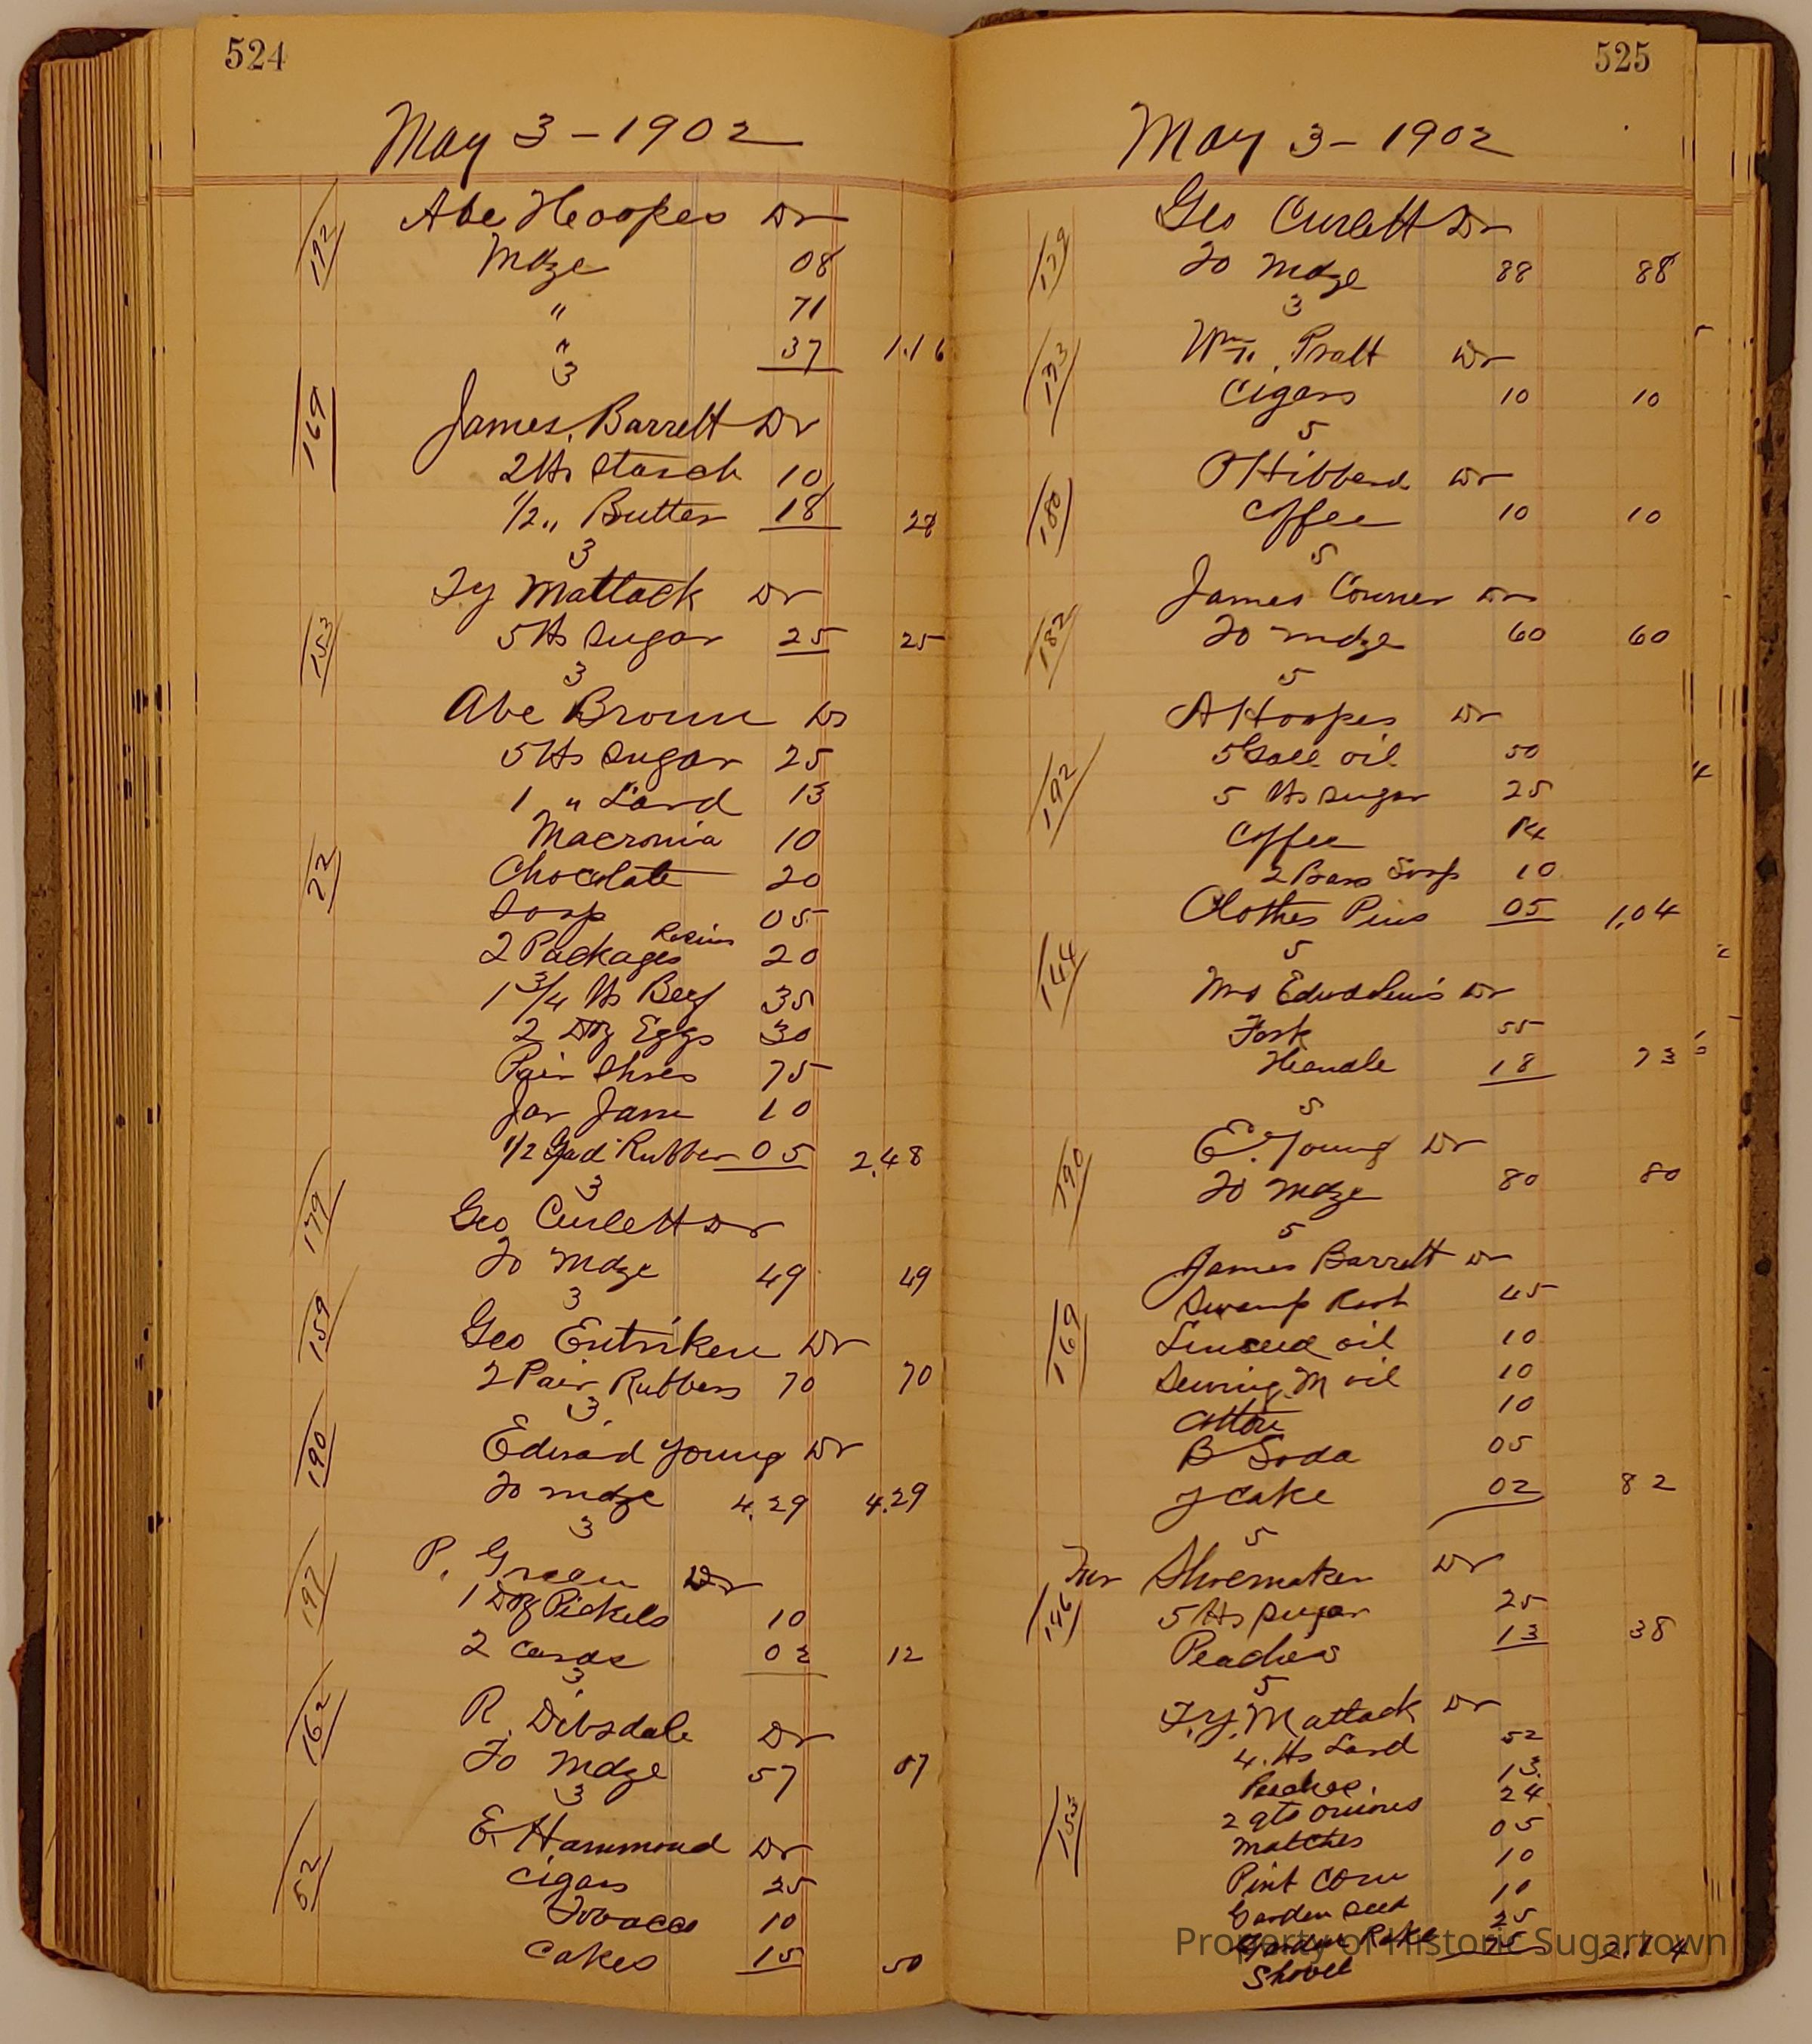 524
May 3 - 1902
192
Abe Hoopes Dr
Mdze 08
" 71
" 37 1.16
3
169
James. Barrett Dr
2 lbs Starch 10
1/2 " Butter 18 28
3
Ty Mattack Dr
153
5 lbs Sugar 25 25
3
Abe Broun Dr
5 lbs Sugar 25
1 " Lard 13
Macronia 10
22
Chocolate 20
Soap 05
2 Packages Rasins 20
1 3/4 lbs Beef 35
2 Doz Eggs 30
Pair Shoes 75
Jar Jam 10
1/2 Rubber 05 2.48
3
179
Geo Curlett Dr
To Mdze 49 49
3
159
Geo Entriken Dr
2 Pair Rubbers 70 70
3
190
Edward Young Dr
To mdze 4.29 4.29
3
197
P. Green Dr
1 Doz Pickels 10
2 Cards 02 12
3
162
R. Dibsdale Dr
To Mdze 57 57
3
E. Hammond Dr
52
Cigars 25
Tobacco 10
Cakes 15 50
525
May 3 - 1902
Geo Curlett Dr
179
To Mdze 88 88
3
Wm. Pratt Dr
Cigars 10 10
5
Hibberd Dr
180
Coffee 10 10
5
James Conner Dr
182
To mdze 60 60
5
A Hoopes Dr
5 Gall oil 50
192
5 lbs Sugar 25
Coffee 14
2 Bars Soap 10
Clothes Pins 05 1,04
5
144
Mrs Edwd Lewis Dr
Fork 55
Handle 18 73
5
190
E. Young Dr
To Mdze 80 80
5
James Barrett Dr
Swamp Root 45
169
Linseed oil 10
Sewing M oil 10
Cotton 10
B Soda 05
Y Cake 02 82
5
Shoemaker Dr
146
5 lbs Sugar 25
Peaches 13 38
5
T. Y. Mattack Dr
4. lbs Lard 52
Peaches. 13
153
2 qts onions 24
Matches 05
Pint Corn 10
Garden Seed 10
Garden Rake 25
Shovel
Property of Historic Sugartown